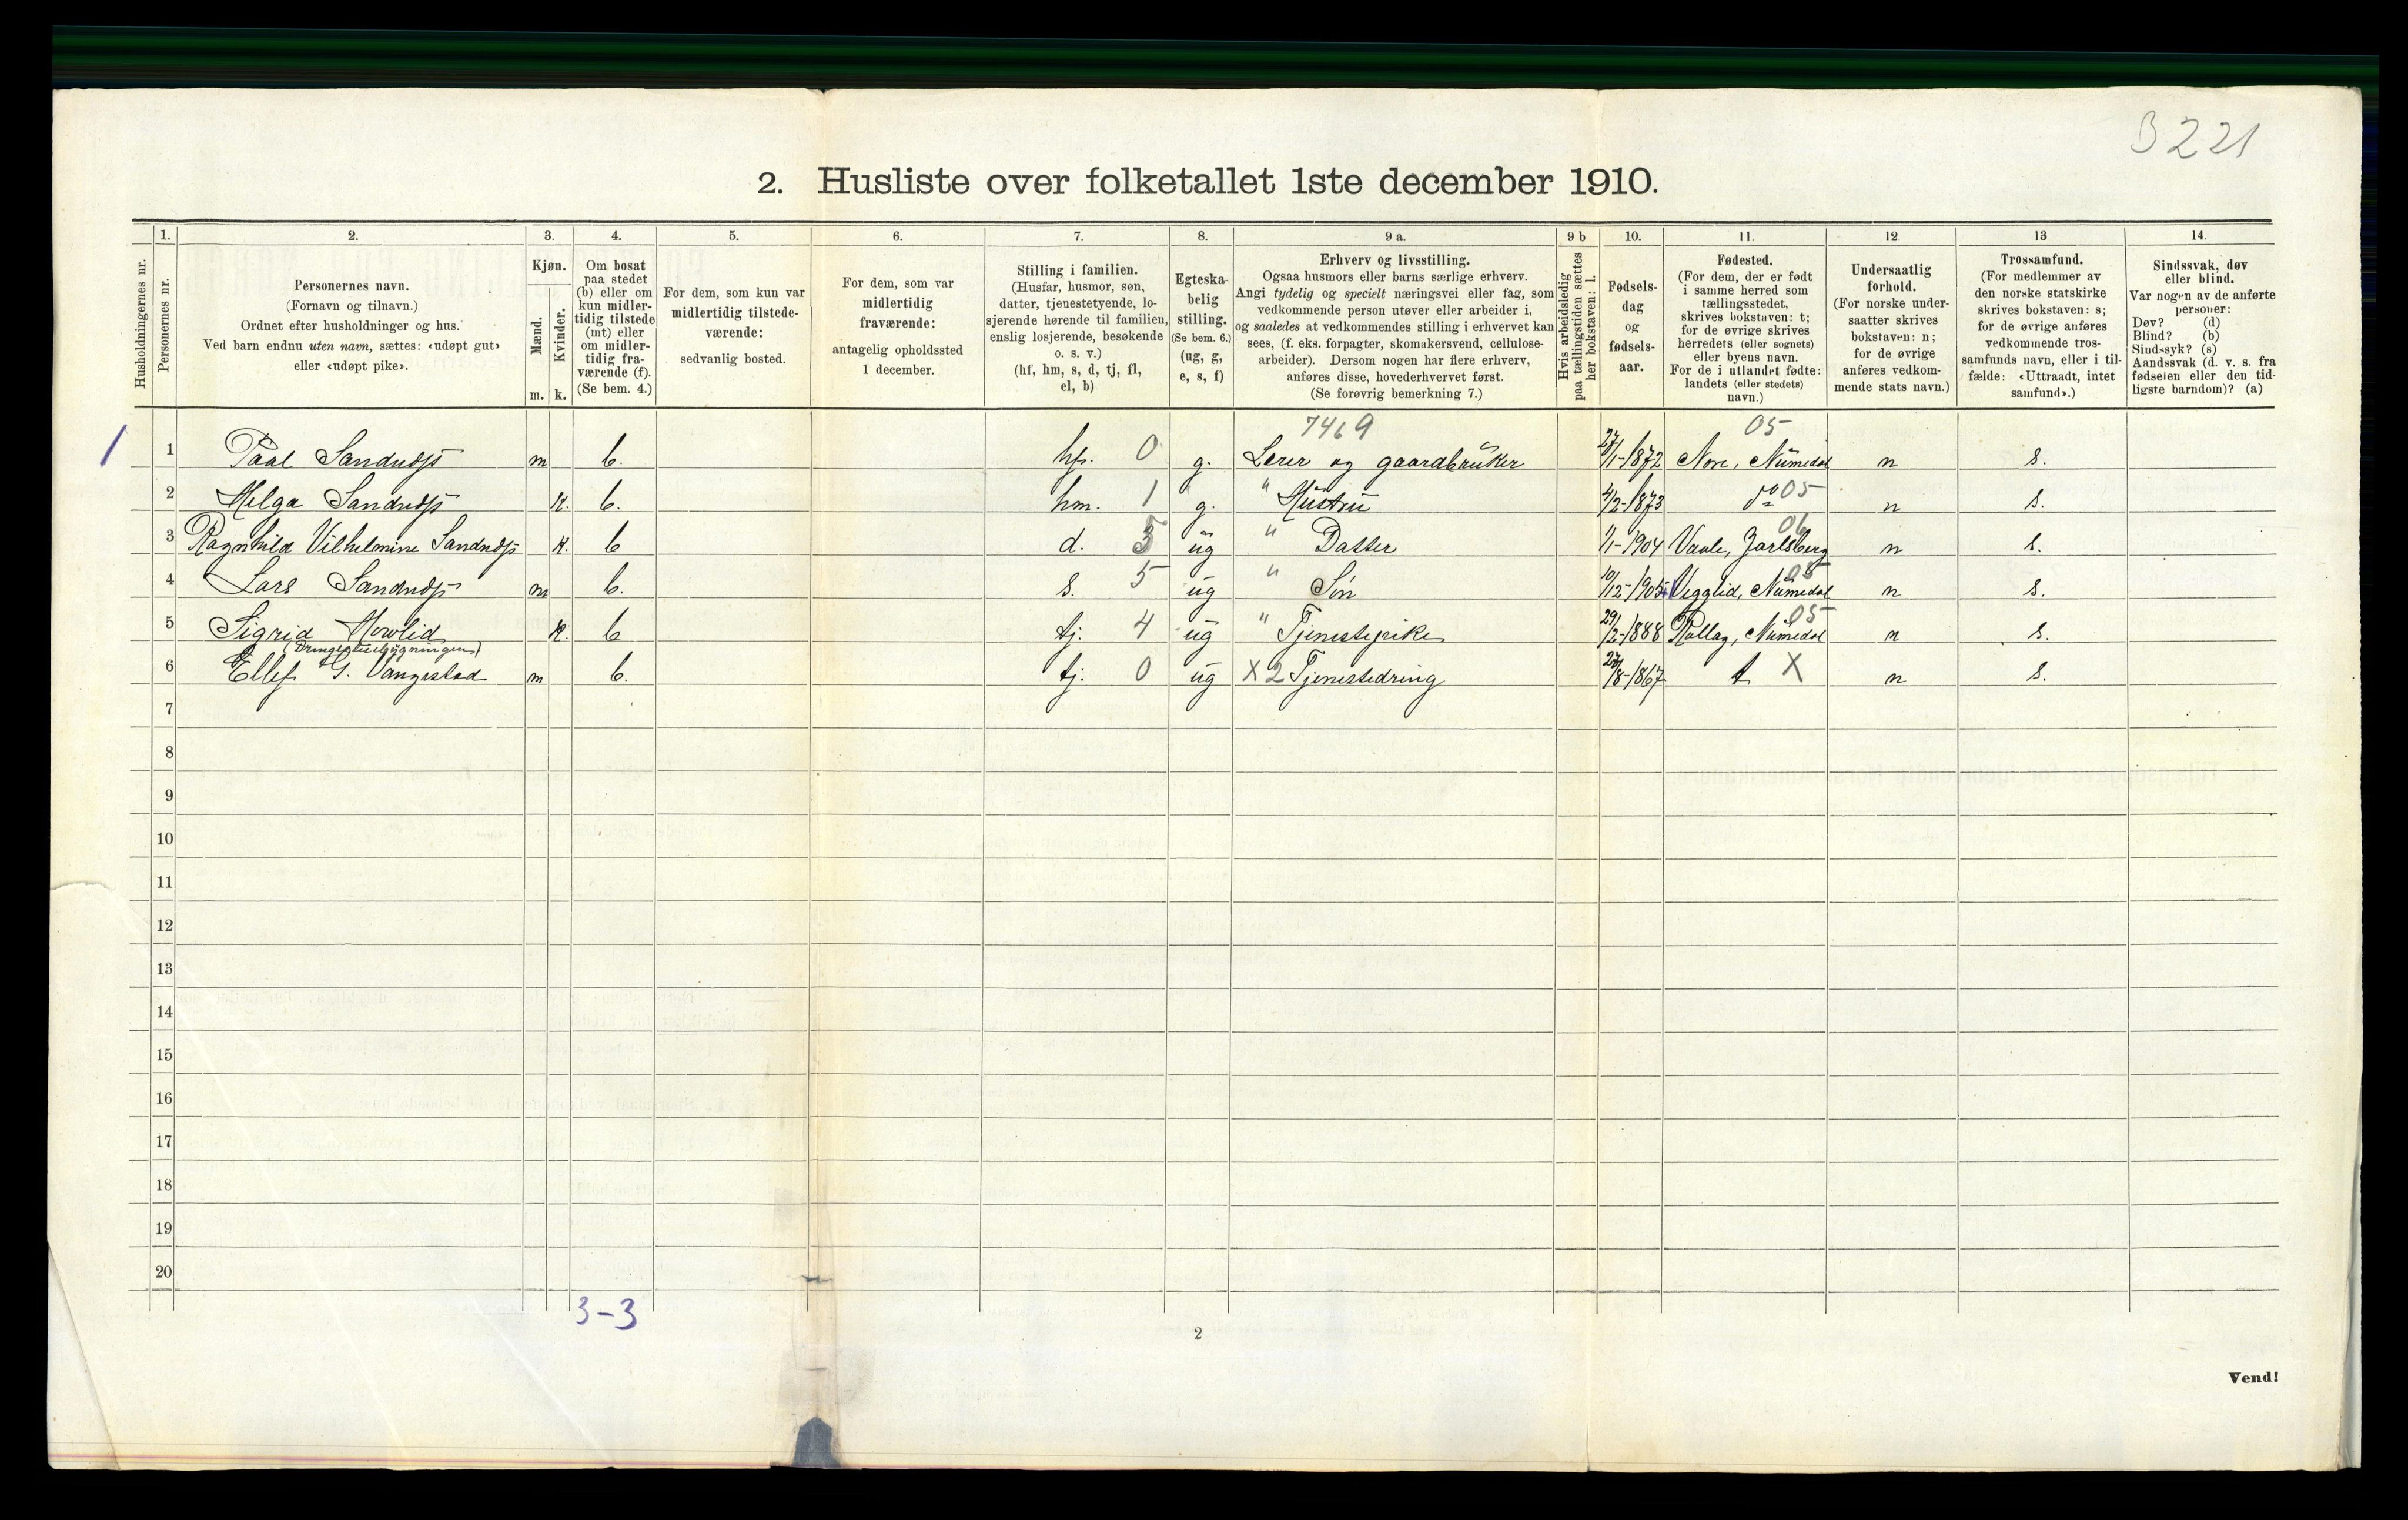 B 221
2. Husliste over folketallet 1ste december 1910.
Husholdningernes nr.
1.
Personernes nr.
2.
Personernes navn.
(Fornavn og tilnavn.)
Ordnet efter husholdninger og hus.
Ved barn endnu uten navn, sættes: «udøpt gut»
eller «udøpt pike».
3.
Kjøn.
Mænd.
Kvinder.
m. k.
4.
Om bosat
paa stedet
(b) eller om
kun midler-
tidig tilstede
(mt) eller
om midler-
tidig fra-
værende (f).
(Se bem. 4.)
5.
For dem, som kun var
midlertidig tilstede-
værende:
sedvanlig bosted.
6.
For dem, som var
midlertidig
fraværende:
antagelig opholdssted
1 december.
7.
Stilling i familien.
(Husfar, husmor, søn,
datter, tjenestetyende, lo-
sjerende hørende til familien,
enslig losjerende, besøkende
o. s. v.)
(hf, hm, s, d, tj, fl,
el, b)
8.
Egteska-
belig
stilling.
(Se bem. 6.)
(ug, g,
e, s, f)
9 a.
Erhverv og livsstilling.
Ogsaa husmors eller barns særlige erhverv.
Angi tydelig og specielt næringsvei eller fag, som
vedkommende person utøver eller arbeider i,
og saaledes at vedkommendes stilling i erhvervet kan
sees, (f. eks. forpagter, skomakersvend, cellulose-
arbeider). Dersom nogen har flere erhverv,
anføres disse, hovederhvervet først.
(Se forøvrig bemerkning 7.)
9 b
Hvis arbeidsledig
paa tællingstiden sættes
her bokstaven: l.
10.
Fødsels-
dag
og
fødsels-
aar.
11.
Fødested.
(For dem, der er født
i samme herred som
tællingsstedet,
skrives bokstaven: t;
for de øvrige skrives
herredets (eller sognets)
eller byens navn.
For de i utlandet fødte:
landets (eller stedets)
navn.)
12.
Undersaatlig
forhold.
(For norske under-
saatter skrives
bokstaven: n;
for de øvrige
anføres vedkom-
mende stats navn.)
13
Trossamfund.
(For medlemmer av
den norske statskirke
skrives bokstaven: s;
for de øvrige anføres
vedkommende tros-
samfunds navn, eller i til-
fælde: «Uttraadt, intet
samfund».)
14.
Sindssvak, døv
eller blind.
Var nogen av de anførte
personer:
Døv? (d)
Blind? (b)
Sindssyk? (s)
Aandssvak (d. v. s. fra
fødselen eller den tid-
ligste barndom)? (a)
7469 05
1 1 Paal m b. hf. 0 g. Lærer og gaardbruker 27/1-1872 Nore, Numedal n s.
2 Helga K. b. hm. 1 g. " Hustru 4/2-1873 do 05 n s.
06
3 Ragnhild Vilhelmine K. b d. 5 ug " Datter 1/1-1904 Vaale, Jarlsberg n s.
05
4 Lars m b. s. 5 ug " Søn 10/12-1905 Vegglid, Numedal n s.
05
5 Sigrid K. b tj. 4 ug " Tjenestepike 29/2-1888 Rollag, Numedal n s.
6 Ellef G. Vangestad m b. tj. 0 ug X 2 Tjenestedreng 27/8-1867 t X n s.
7
8
9
10
11
12
13
14
15
16
17
18
19
20
3-3
2
Vend!